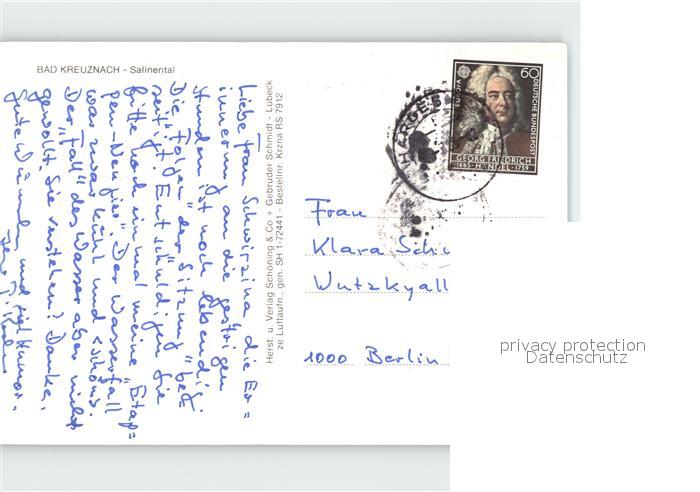 BAD KREUZNACH - Salinental
Liebe Frau Schwirzina die Er=
innerung an die gestrigen
Stunden ist noch lebendig.
Die "Folgen" der Sitzung
seitigt. Entschuldigen Sie
bitte noch einmal meine "Etap=
pen-Neugier". Der Wasserfall
war zwar kühl und schön.
Der "Fall" des Wasser aber nicht
gewollt. Sie verstehen? Danke.
Gute Wünsche und viel Humor.
Herst. u. Verlag Schöning & Co + Gebrüder Schmidt - Lübeck
ze Luftaufn., gen. SH 1-72441 - Bestellnr. Krzna RS 7912
EUROPA
60
DEUTSCHE BUNDESPOST
GEORG FRIEDRICH
1685 - HÄNDEL - 1759
Frau
Klara Schw
Wutzkyall
1000 Berlin
privacy protection
Datenschutz